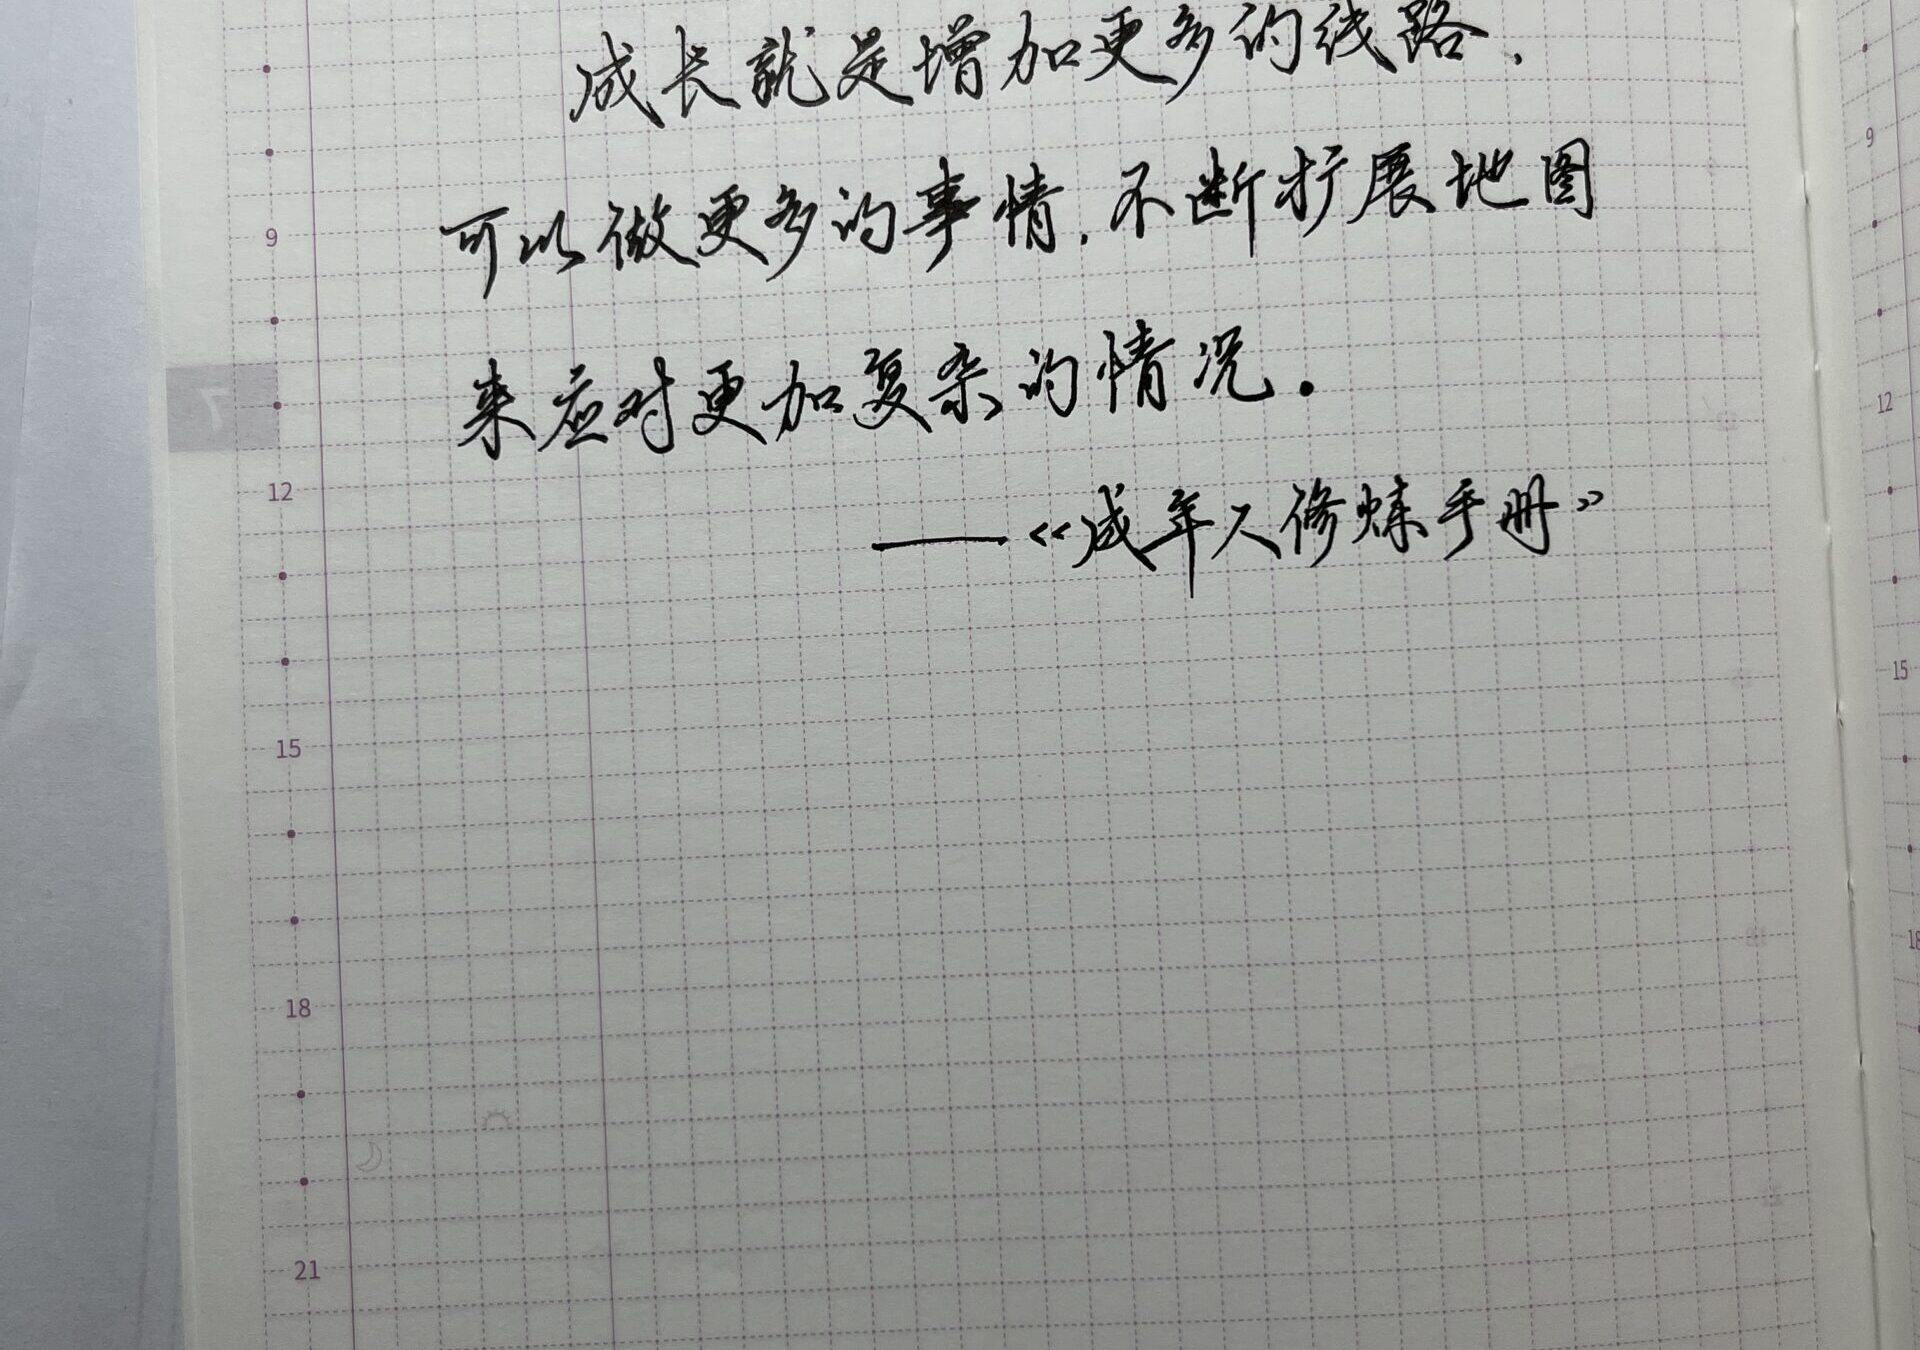 成长就是增加更多的线路，
9
可以做更多的事情，不断扩展地图
9
来应对更加复杂的情况。
7
12
12
——《成年人修炼手册》
15
15
18
18
21